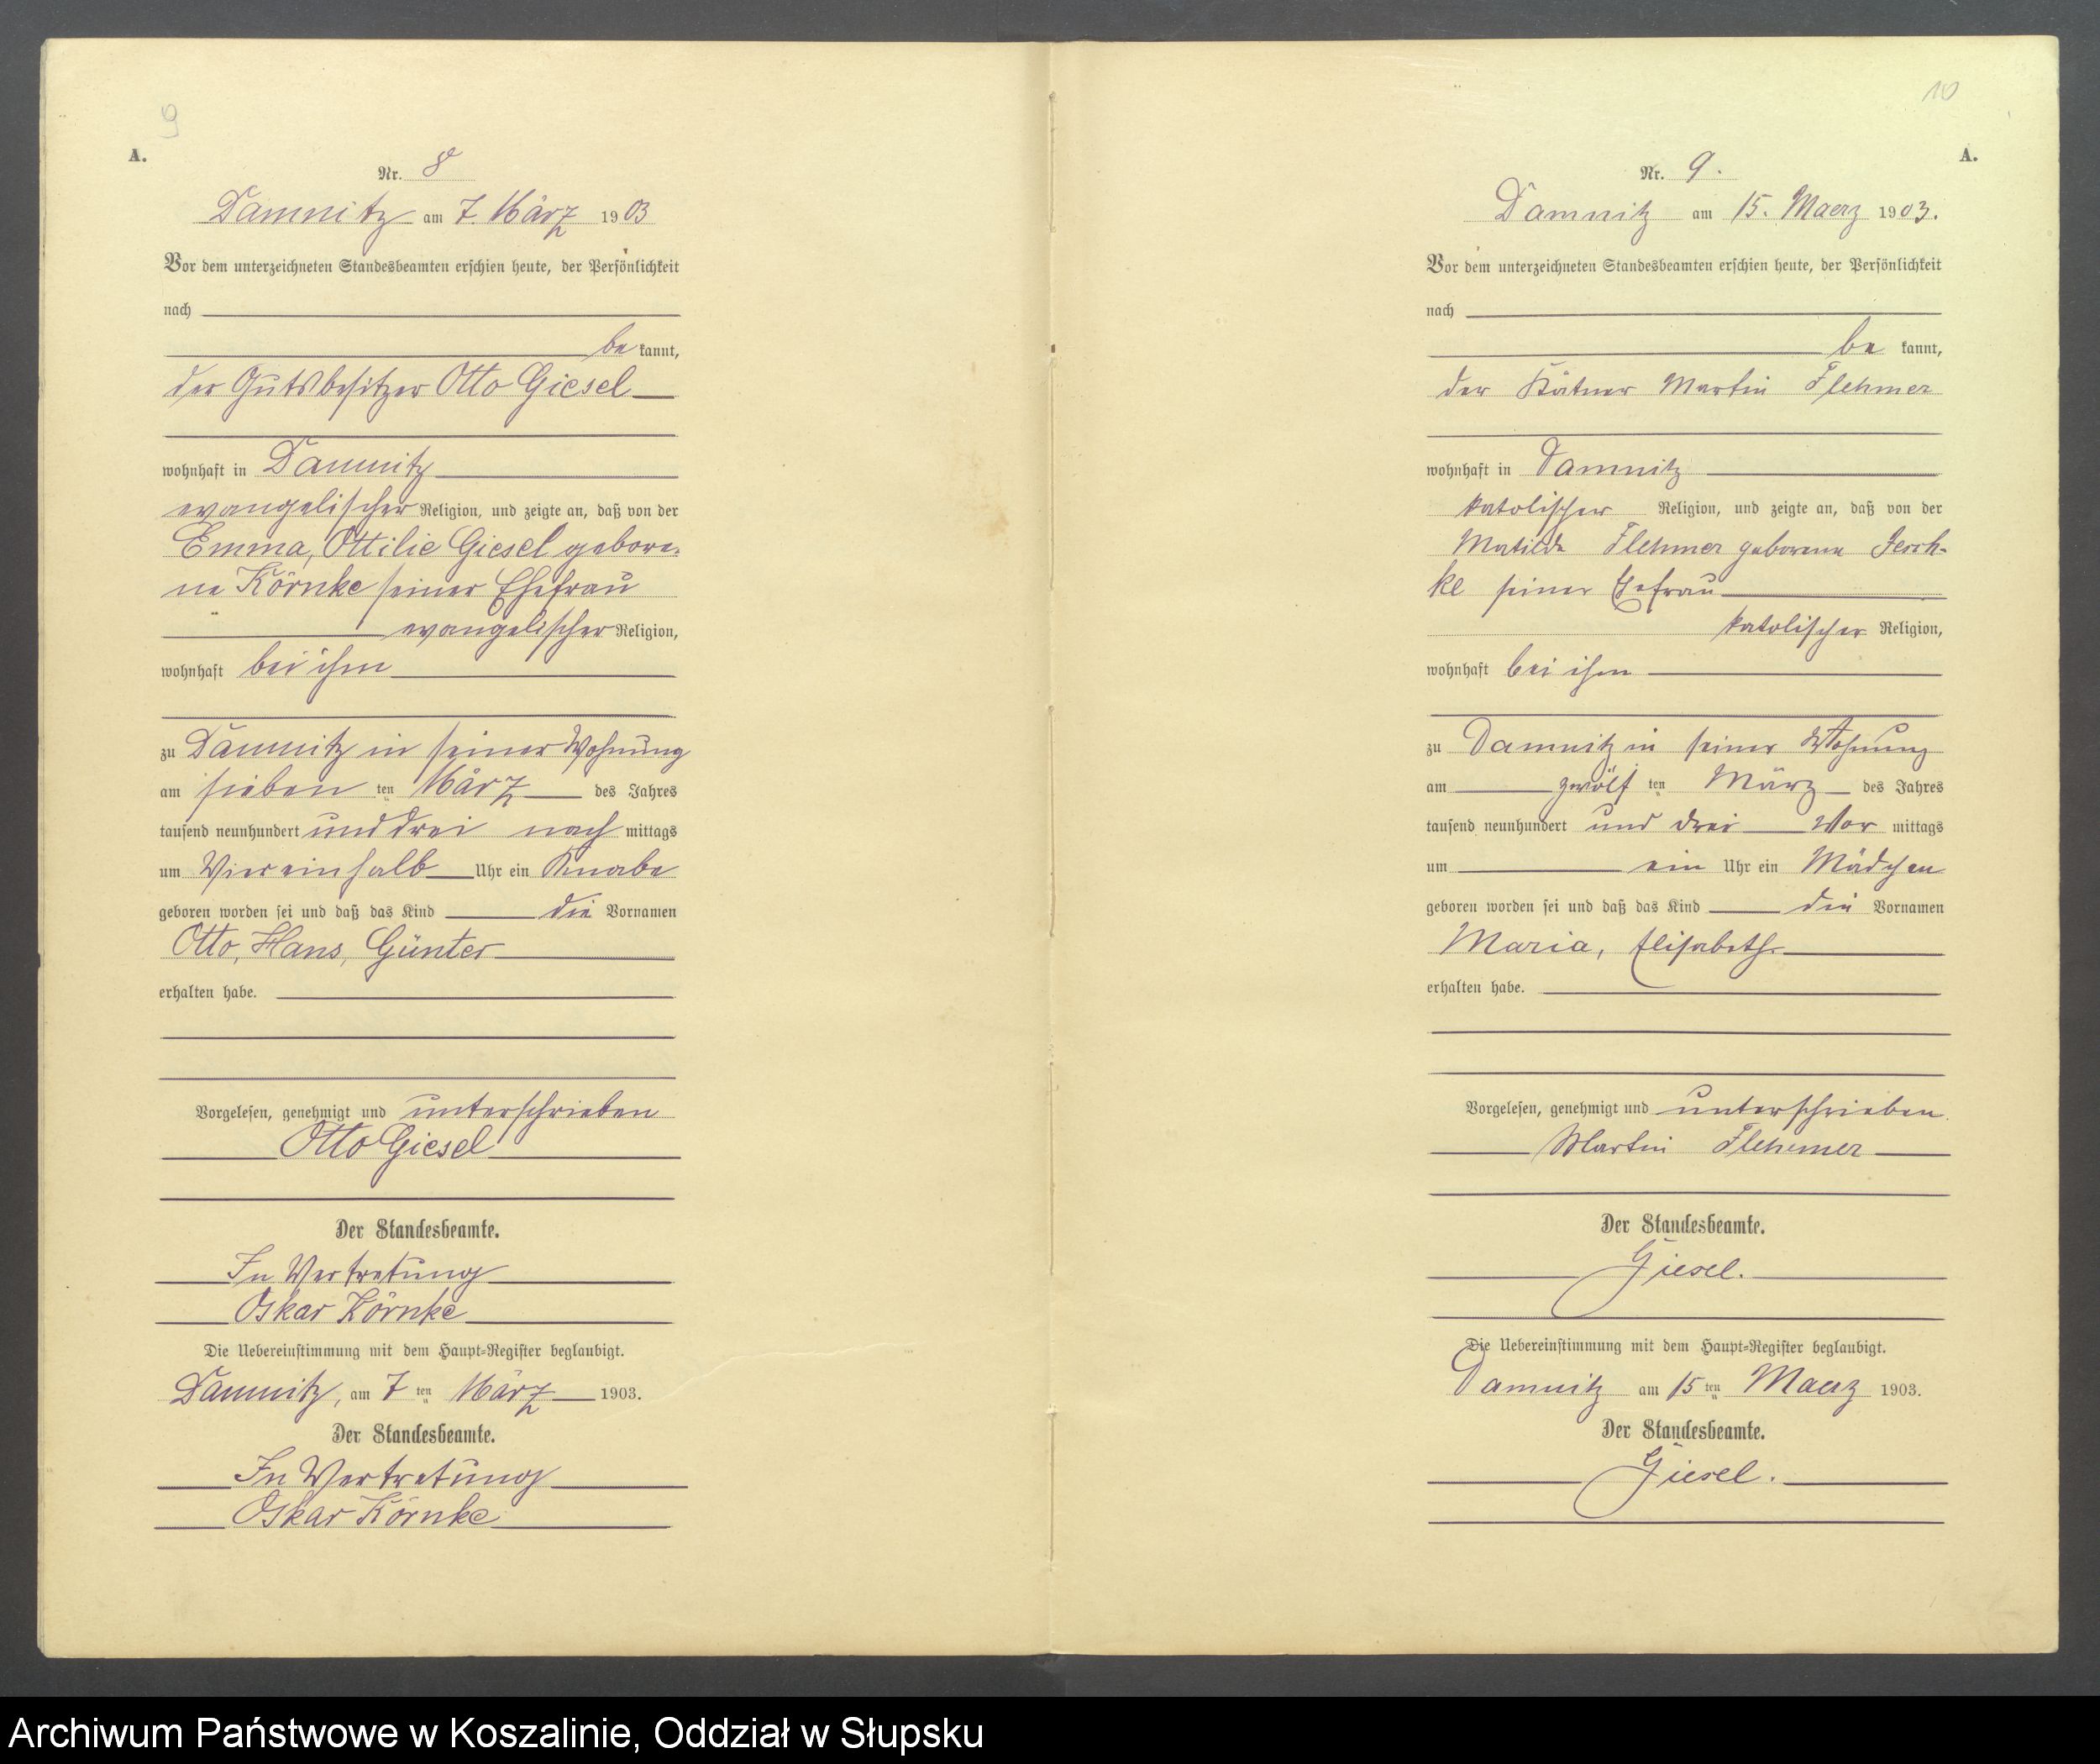 9
A.
Nr. 8
Damnitz am 7. März 1903
Vor dem unterzeichneten Standesbeamten erschien heute, der Persönlichkeit
nach
be kannt,
der Gutsbesitzer Otto Giesel
wohnhaft in Damnitz
evangelischer Religion, und zeigte an, daß von der
Emma, Ottilie Giesel gebore-
ne Körnke seiner Ehefrau
evangelischer Religion,
wohnhaft bei ihm
zu Damnitz in seiner Wohnung
am sieben ten März des Jahres
tausend neunhundert und drei nach mittags
um Viereinhalb Uhr ein Knabe
geboren worden sei und daß das Kind die Vornamen
Otto, Hans, Günter
erhalten habe.
Vorgelesen, genehmigt und unterschrieben
Otto Giesel
Der Standesbeamte.
In Vertretung
Oskar Körnke
Die Uebereinstimmung mit dem Haupt-Register beglaubigt.
Damnitz, am 7 ten März 1903.
Der Standesbeamte.
In Vertretung
Oskar Körnke
10
A.
Nr. 9.
Damnitz am 15. Maerz 1903.
Vor dem unterzeichneten Standesbeamten erschien heute, der Persönlichkeit
nach
be kannt,
der Kätner Martin Flehmer
wohnhaft in Damnitz
katolischer Religion, und zeigte an, daß von der
Matilde Flehmer geborene Jesch-
ke seiner Ehefrau
katolischer Religion,
wohnhaft bei ihm
zu Damnitz in seiner Wohnung
am zwölf ten März des Jahres
tausend neunhundert und drei Vor mittags
um ein Uhr ein Mädchen
geboren worden sei und daß das Kind die Vornamen
Maria, Elisabeth
erhalten habe.
Vorgelesen, genehmigt und unterschrieben
Martin Flehmer
Der Standesbeamte.
Giesel.
Die Uebereinstimmung mit dem Haupt-Register beglaubigt.
Damnitz am 15 ten Maerz 1903.
Der Standesbeamte.
Giesel.
Archiwum Państwowe w Koszalinie, Oddział w Słupsku